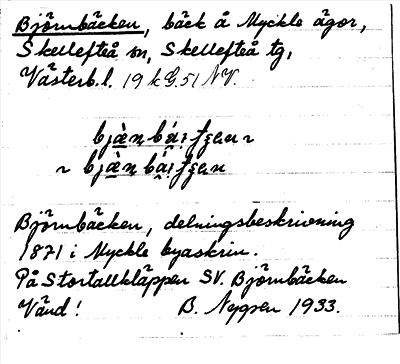 Björnbäcken, bäck å Myckle ägor,
Skellefteå sn, Skellefteå tg,
Västerb.l. 19 k G. 51 NV.
Björnbäcken, delningsbeskrivning
1871 i Myckle byaskrin.
På Stortallkläppen SV. Björnbäcken
Vänd! B. Nygren 1933.